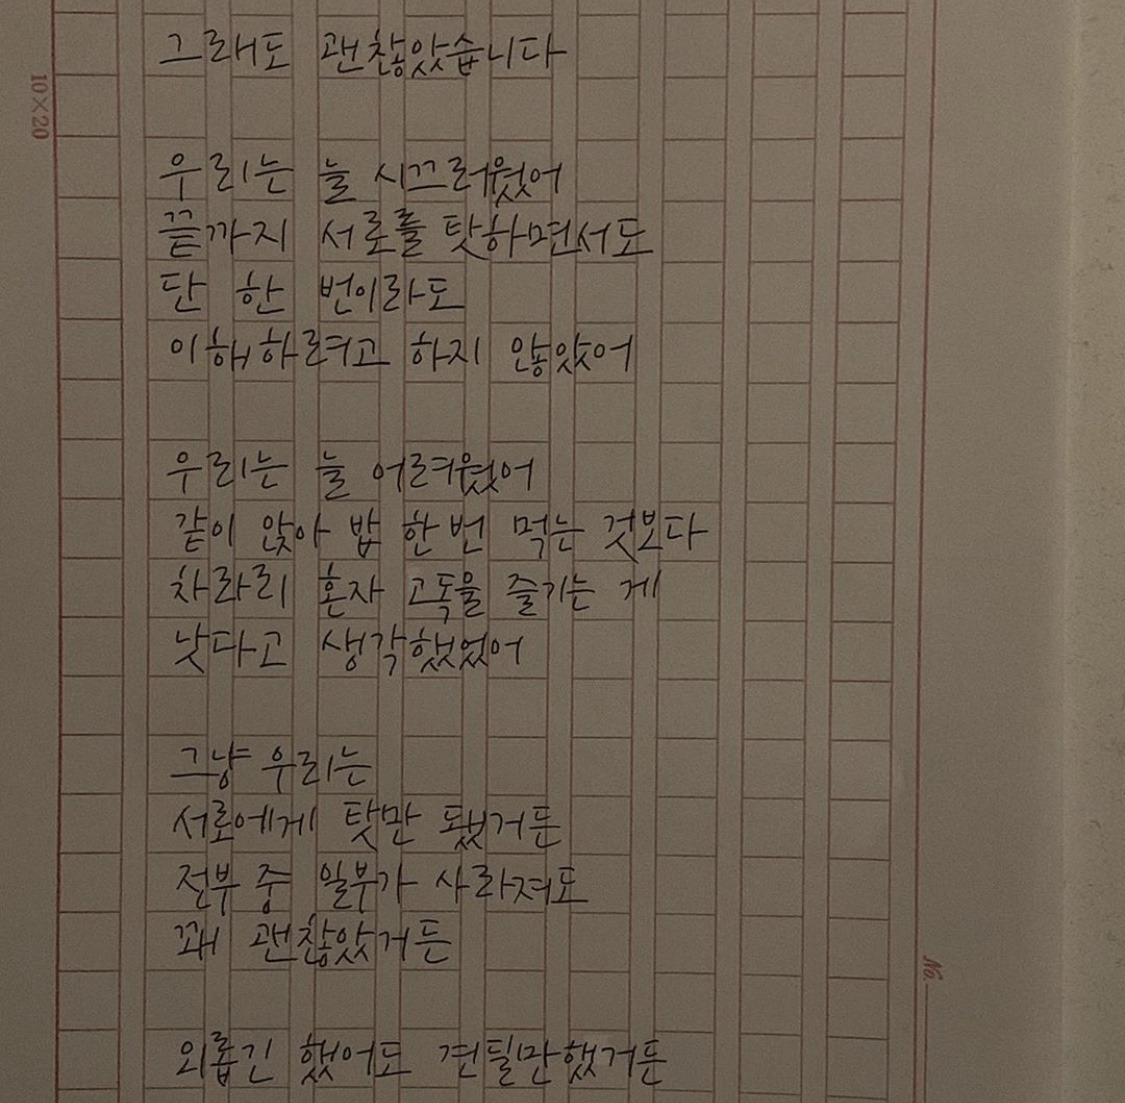 그래도 괜찮았습니다
10×20
우리는 늘 시끄러웠어
끝까지 서로를 탓하면서도
단 한 번이라도
이해하려고 하지 않았어
우리는 늘 어려웠어
같이 앉아 밥 한 번 먹는 것보다
차라리 혼자 고독을 즐기는 게
낫다고 생각했었어
그냥 우리는
서로에게 탓만 됐거든
전부 중 일부가 사라져도
꽤 괜찮았거든
No.
외롭긴 했어도 견딜만했거든